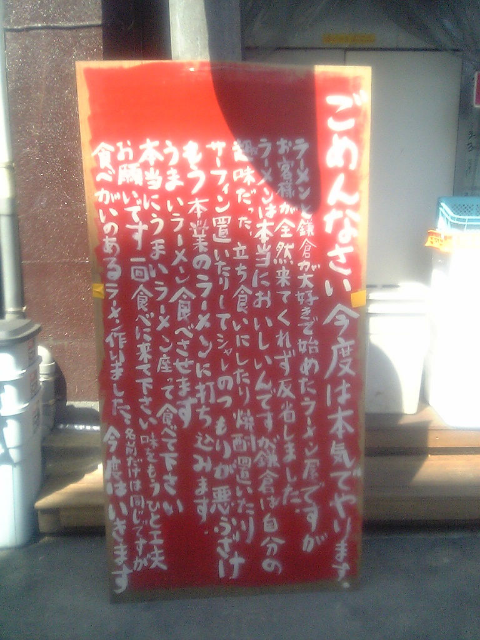 ごめんなさい今度は本気でやります。
ラーメンと鎌倉が大好きで始めたラーメン屋ですが
お客様が全然来てくれず反省しました。
ラーメンは本当においしいんですが鎌倉は自分の
趣味だった、立ち食いにしたり焼酎置いたり
サーフィン置いたりしてシャレのつもりが悪ふざけ
もう本業のラーメンに打ち込みます
うまいラーメン食べさせます
本当にうまいラーメン座って食べて下さい
お願いです一回食べに来て下さい味をもうひと工夫
名前だけは同じですが
食べがいのあるラーメン作りました、今度はいきます